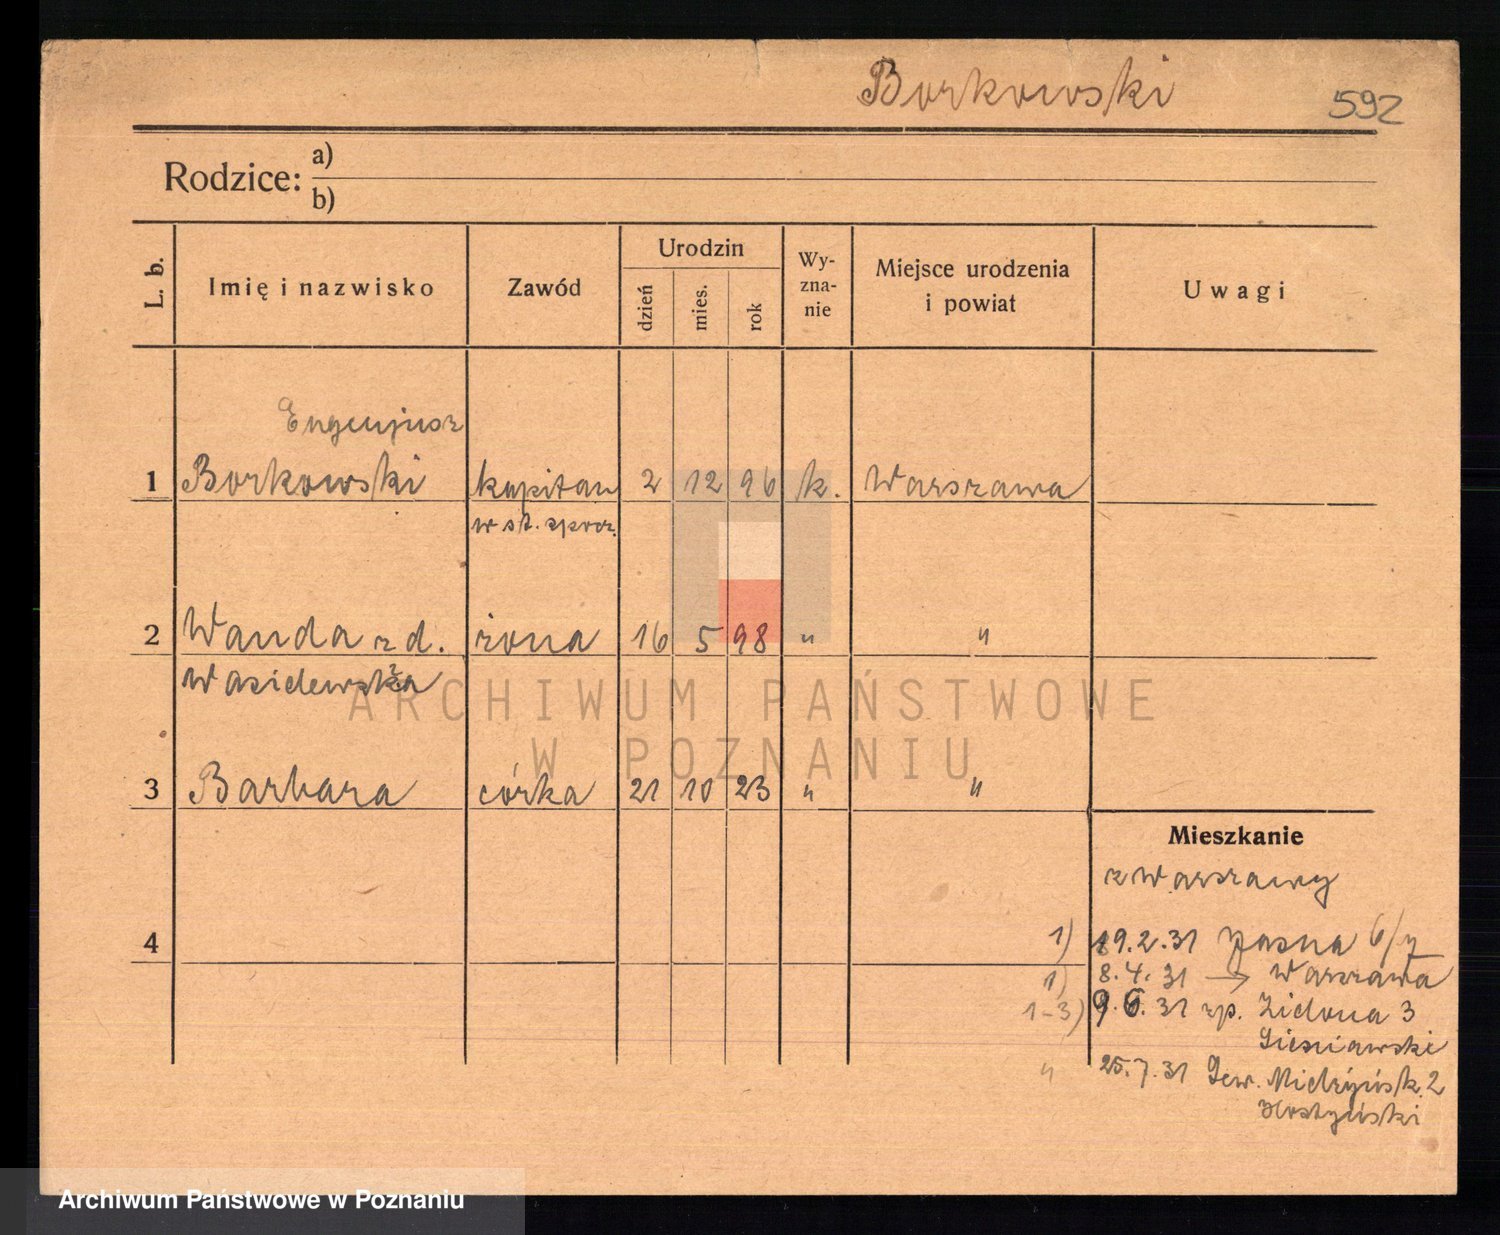 Borkowski 592
Rodzice: a)
b)
L. b.
Imię i nazwisko
Zawód
Urodzin
dzień
mies.
rok
Wy-
zna-
nie
Miejsce urodzenia
i powiat
Uwagi
Eugenjusz
1 Borkowski kapitan 2 12 96 k. Warszawa
w st. spocz.
2 Wanda z d. żona 16 5 98 " "
3 Barbara córka 21 10 23 " "
4
Mieszkanie
z Warszawy
1) 19.2.31 Jasna 6/7
1) 8.4.31 → Warszawa
1-3) 9.6.31 zp. 3
" 25.7.31 2
ARCHIWUM PAŃSTWOWE
W POZNANIU
Archiwum Państwowe w Poznaniu